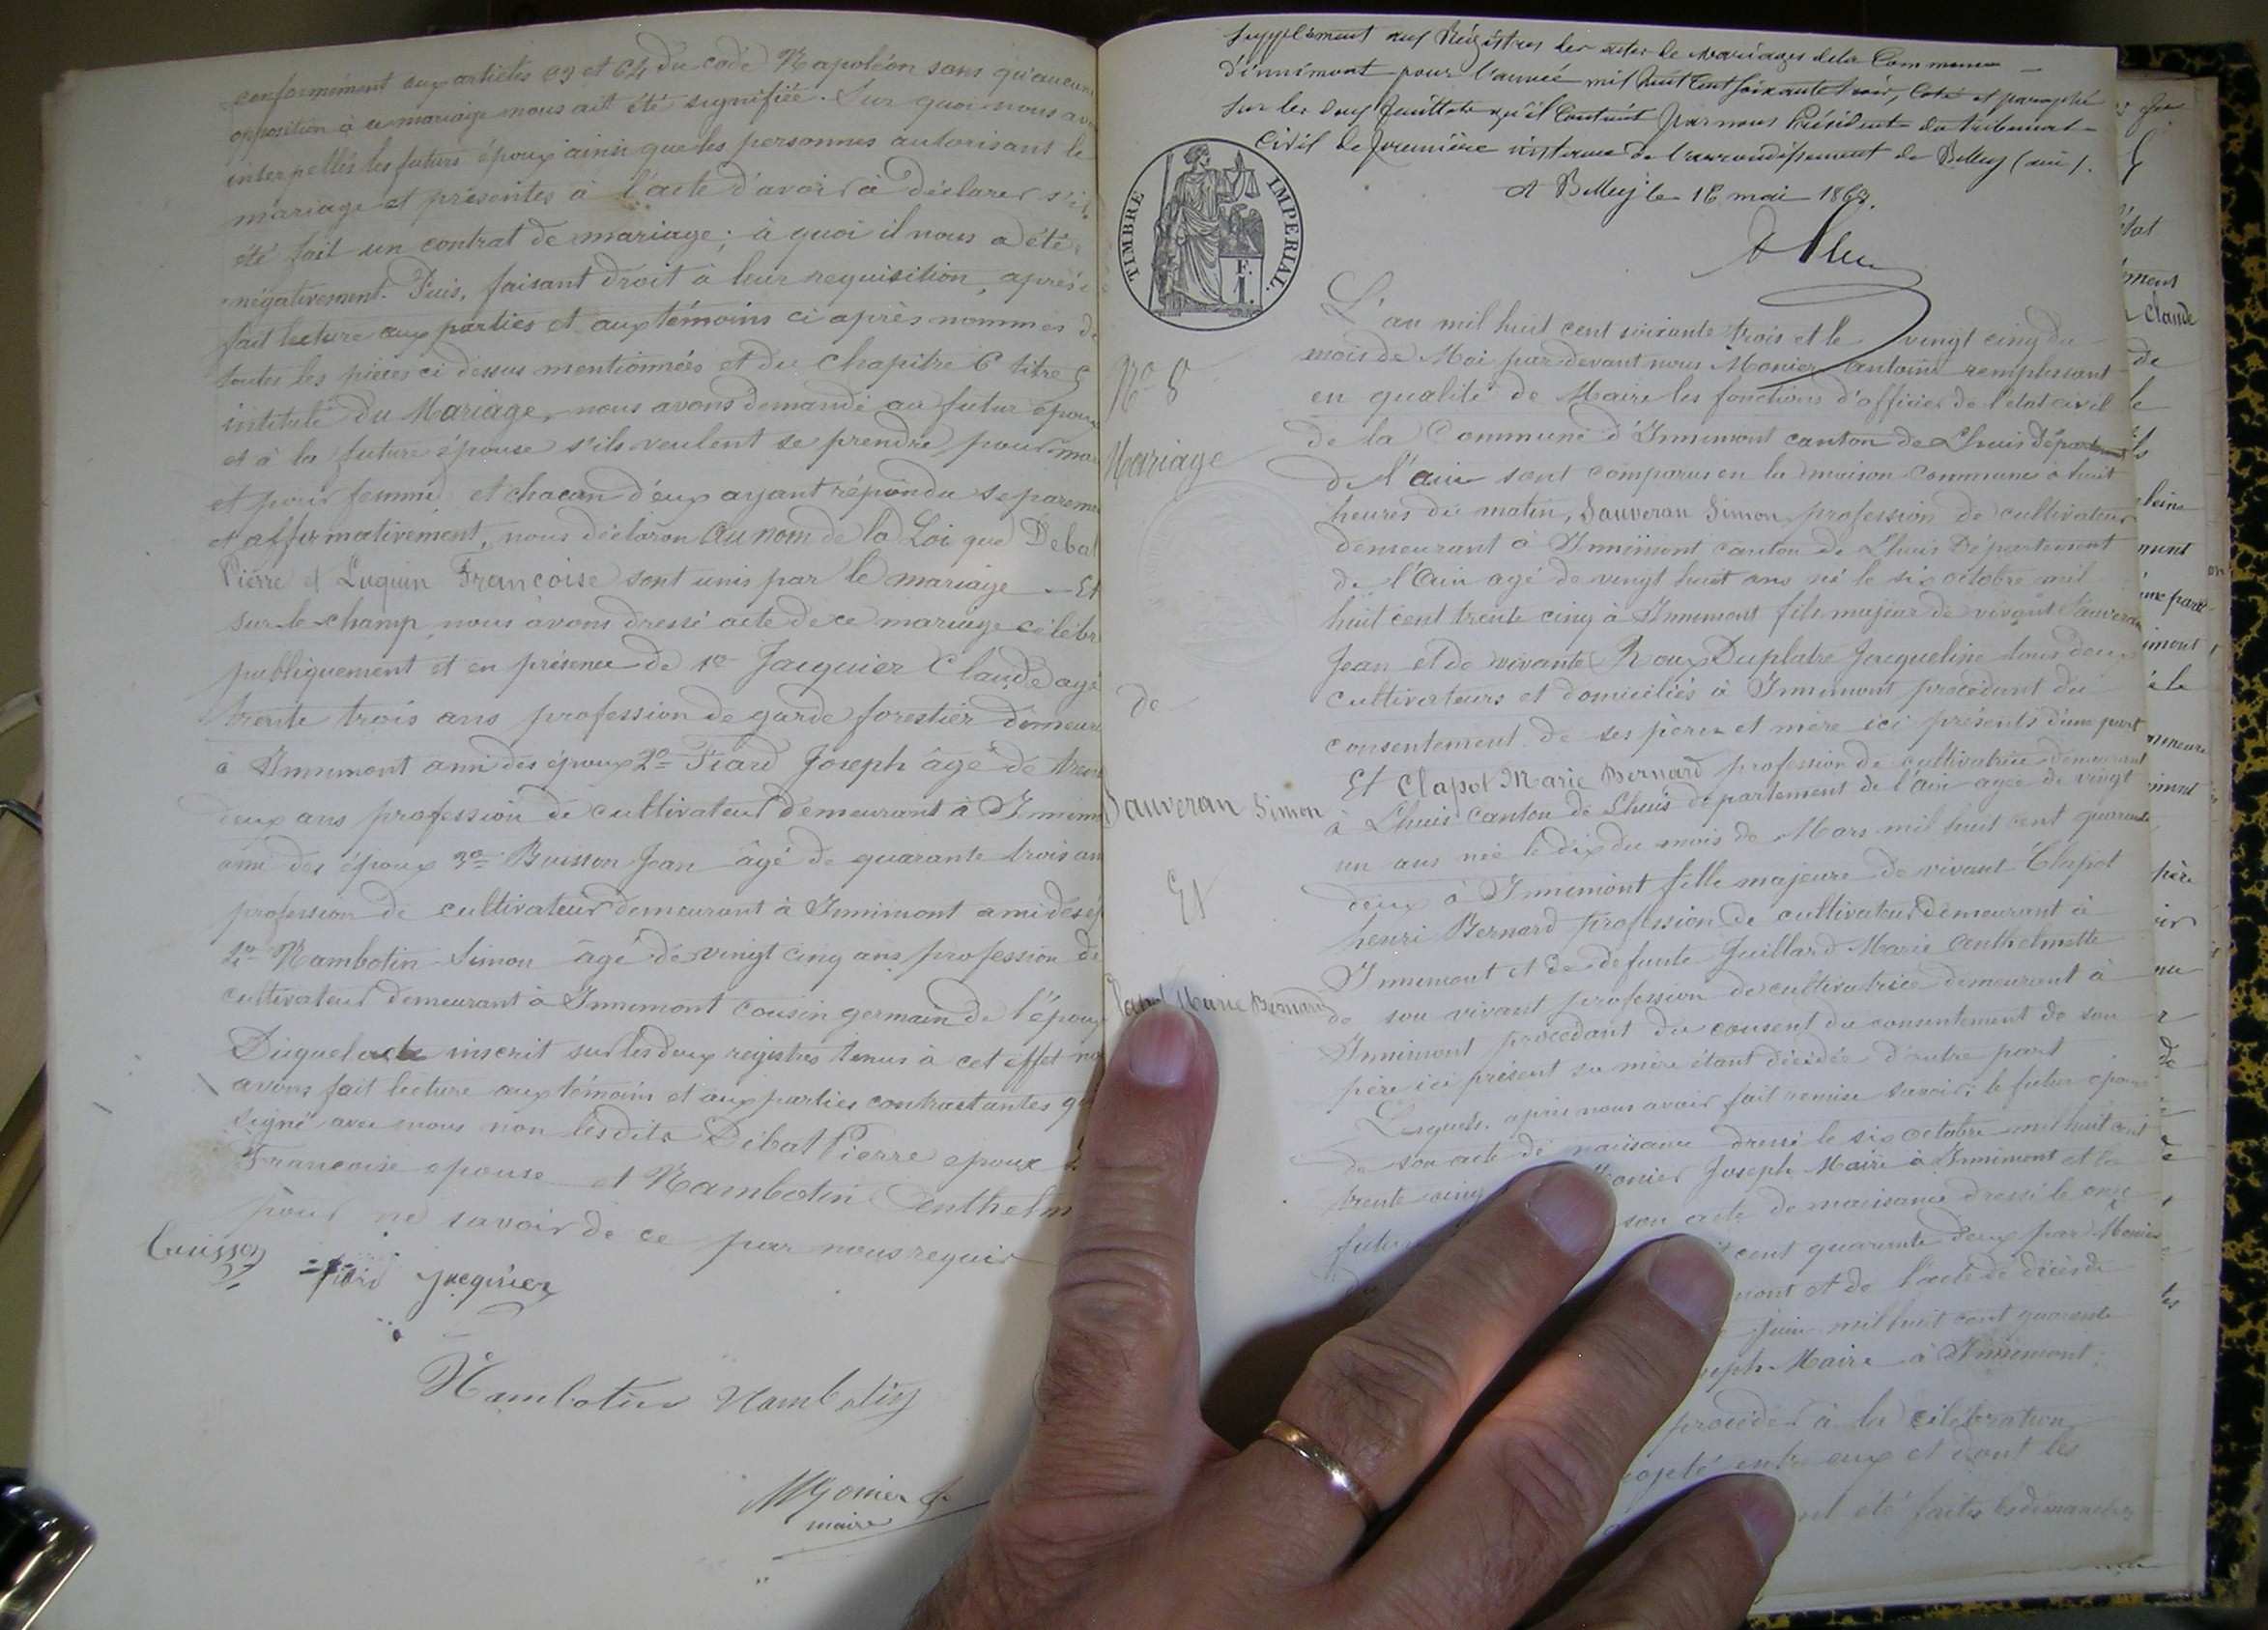 conformément aux articles 63 et 64 du code Napoléon sans qu'aucune
opposition à ce mariage nous ait été signifiée. Sur quoi nous av
interpellés les futurs époux ainsi que les personnes autorisant le
mariage et présentes à l'acte d'avoir à déclarer s'il
été fait un contrat de mariage; à quoi il nous a été
négativement. Puis, faisant droit à leur requisition, après
fait lecture aux parties et aux témoins ci après nommés de
toutes les pièces ci dessus mentionnées et du chapitre 6 titre 5
intitulé du Mariage, nous avons demandé au futur époux
et à la future épouse s'ils veulent se prendre pour mar
et pour femme, et chacun d'eux ayant répondu separeme
et affirmativement, nous déclaron au nom de la Loi que Debat
Pierre et Luquin Françoise sont unis par le mariage - Et
sur-le-champ nous avons dressé acte de ce mariage célébr
publiquement et en présence de 1º Jacquier Claude agé
trente trois ans profession de garde forestier demeura
à Innimont ami des époux 2º Piard Joseph âgé de trente
deux ans profession de cultivateur demeurant à Innim
ami des époux 3º Buisson Jean âgé de quarante trois an
profession de cultivateur demeurant à Innimont ami des ép
4º Nambotin Simon âgé de vingt cinq ans profession de
cultivateur demeurant à Innimont cousin germain de l'époux
Duquel acte inscrit sur les deux registres tenus à cet effet no
avons fait lecture aux témoins et aux parties contractantes qu
signé avec nous non lesdits Débat Pierre epoux
Francoise epouse et Nambotin Anthelm
pour ne savoir de ce par nous requis
Buisson Piard Jacquier
Nambotin Nambotin
Monier
maire
Supplément aux Registres des actes de mariages de la Commune
d'innimont pour l'année mil huit cent soixante trois, coté et paraphé
sur les deux feuillets qu'il contient par nous Président du tribunal
Civil de première instance de l'arrondissement de Belley (ain).
A Belley le 18 mai 1863.
TIMBRE IMPERIAL
F.
1.
L'an mil huit cent soixante trois et le vingt cinq du
mois de Mai par devant nous Monier Antoine remplissant
en qualité de Maire les fonctions d'officier de l'etat civil
de la Commune d'Innimont canton de Lhuis Département
de l'ain sont comparus en la maison commune à huit
heures du matin, Sauveran Simon profession de cultivateur
demeurant à Innimont canton de Lhuis Département
de l'Ain agé de vingt huit ans né le six octobre mil
huit cent trente cinq à Innimont fils majeur de vivant Sauveran
Jean et de vivante Roux Duplatre Jacqueline tous deux
cultivateurs et domiciliés à Innimont procédant du
consentement de ses père et mère ici présents d'une part
Et Clapot Marie Bernard profession de cultivatrice demeurant
à Lhuis canton de Lhuis département de l'ain agée de vingt
un ans née le dix du mois de Mars mil huit cent quarante
deux à Innimont fille majeure de vivant Clapot
henri Bernard profession de cultivateur demeurant à
Innimont et de defunte Juillard Marie Anthelmette
de son vivant profession de cultivatrice demeurant à
Innimont procédant du consent du consentement de son
père ici présent sa mère étant décédée d'autre part
Lesquels, après nous avoir fait remise savoir; le futur époux
de son acte de naissance dressé le six octobre mil huit cent
trente cinq Monier Joseph Maire à Innimont et la
futur son acte de naissance dressé le onze
cent quarante deux par Monier
mont et de l'acte de décès de
Juin mil huit cent quarante
eph Maire à Innimont;
procéder à la célébration
ojeté entre eux et dont les
nt été faites les demandes
Nº 8
Mariage
de
Sauveran Simon
Et
Clapot Marie Bernard